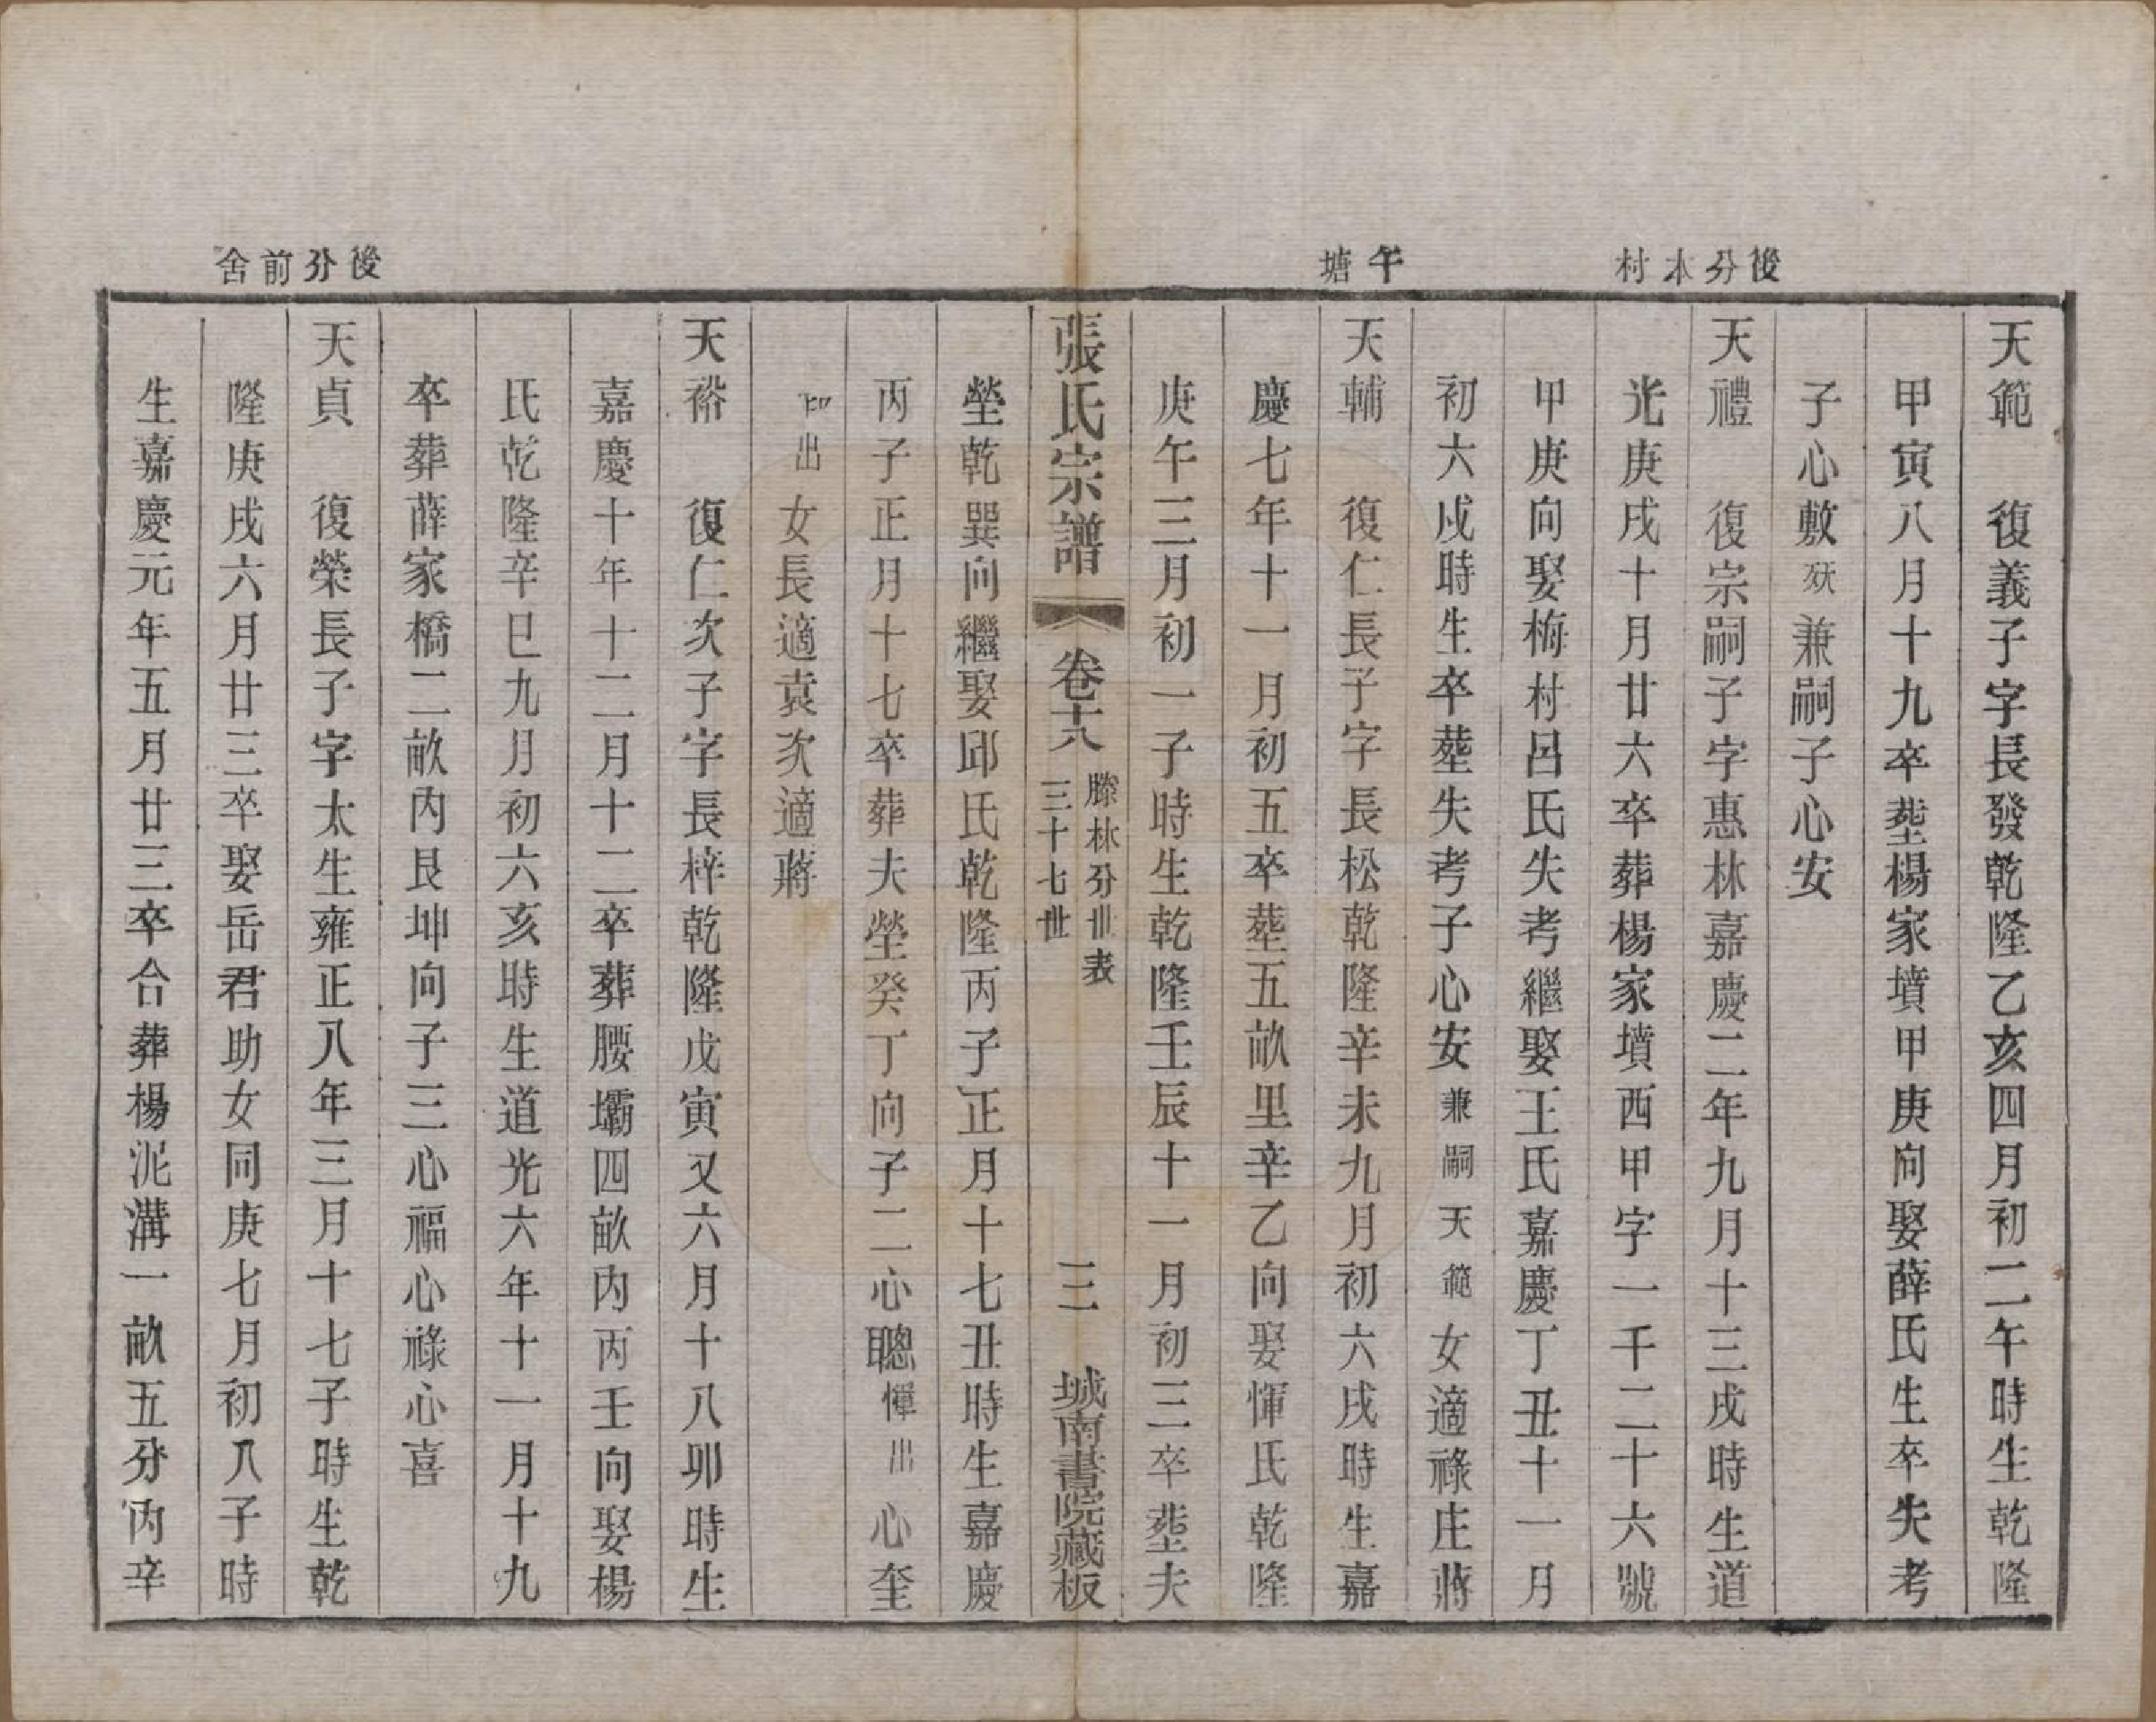 後分本村
午塘
後分前舍
天範　復義子字長發乾隆乙亥四月初二午時生乾隆
甲寅八月十九卒塟楊家墳甲庚向娶薛氏生卒失考
子心敷殀兼嗣子心安
天禮　復宗嗣子字惠林嘉慶二年九月十三戌時生道
光庚戌十月廿六卒葬楊家墳西甲字一千二十六號
甲庚向娶梅村呂氏失考繼娶王氏嘉慶丁丑十一月
初六戌時生卒塟失考子心安兼嗣天範女適祿庄蔣
天輔　復仁長子字長松乾隆辛未九月初六戌時生嘉
慶七年十一月初五卒塟五畝里辛乙向娶惲氏乾隆
庚午三月初一子時生乾隆壬辰十一月初三卒塟夫
張氏宗譜　卷十六　滕林分世表　三十七世　三　城南書院藏板
塋乾巽向繼娶邱氏乾隆丙子正月十七丑時生嘉慶
丙子正月十七卒葬夫塋癸丁向子二心聰惲出心奎
邱出女長適袁次適蔣
天裕　復仁次子字長梓乾隆戊寅又六月十八卯時生
嘉慶十年十二月十二卒葬腰壩四畝內丙壬向娶楊
氏乾隆辛巳九月初六亥時生道光六年十一月十九
卒葬薛家橋二畝內艮坤向子三心福心祿心喜
天貞　復榮長子字太生雍正八年三月十七子時生乾
隆庚戌六月廿三卒娶岳君助女同庚七月初八子時
生嘉慶元年五月廿三卒合葬楊泥溝一畝五分內辛